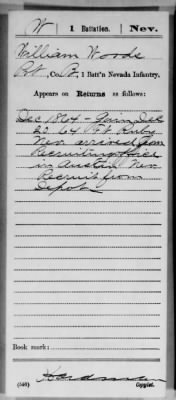 W | 1 Battalion. | Nev.
William Woods
Pvt, Co. B, 1 Batt'n Nevada Infantry.
Appears on Returns as follows:
Dec 1864 - Gain Dec
20. 64 Ft. Ruby
Nev. arrived from
Recruiting office
in Austin Nev
Recruit from
Depot
Book mark:
(546) Copyist.